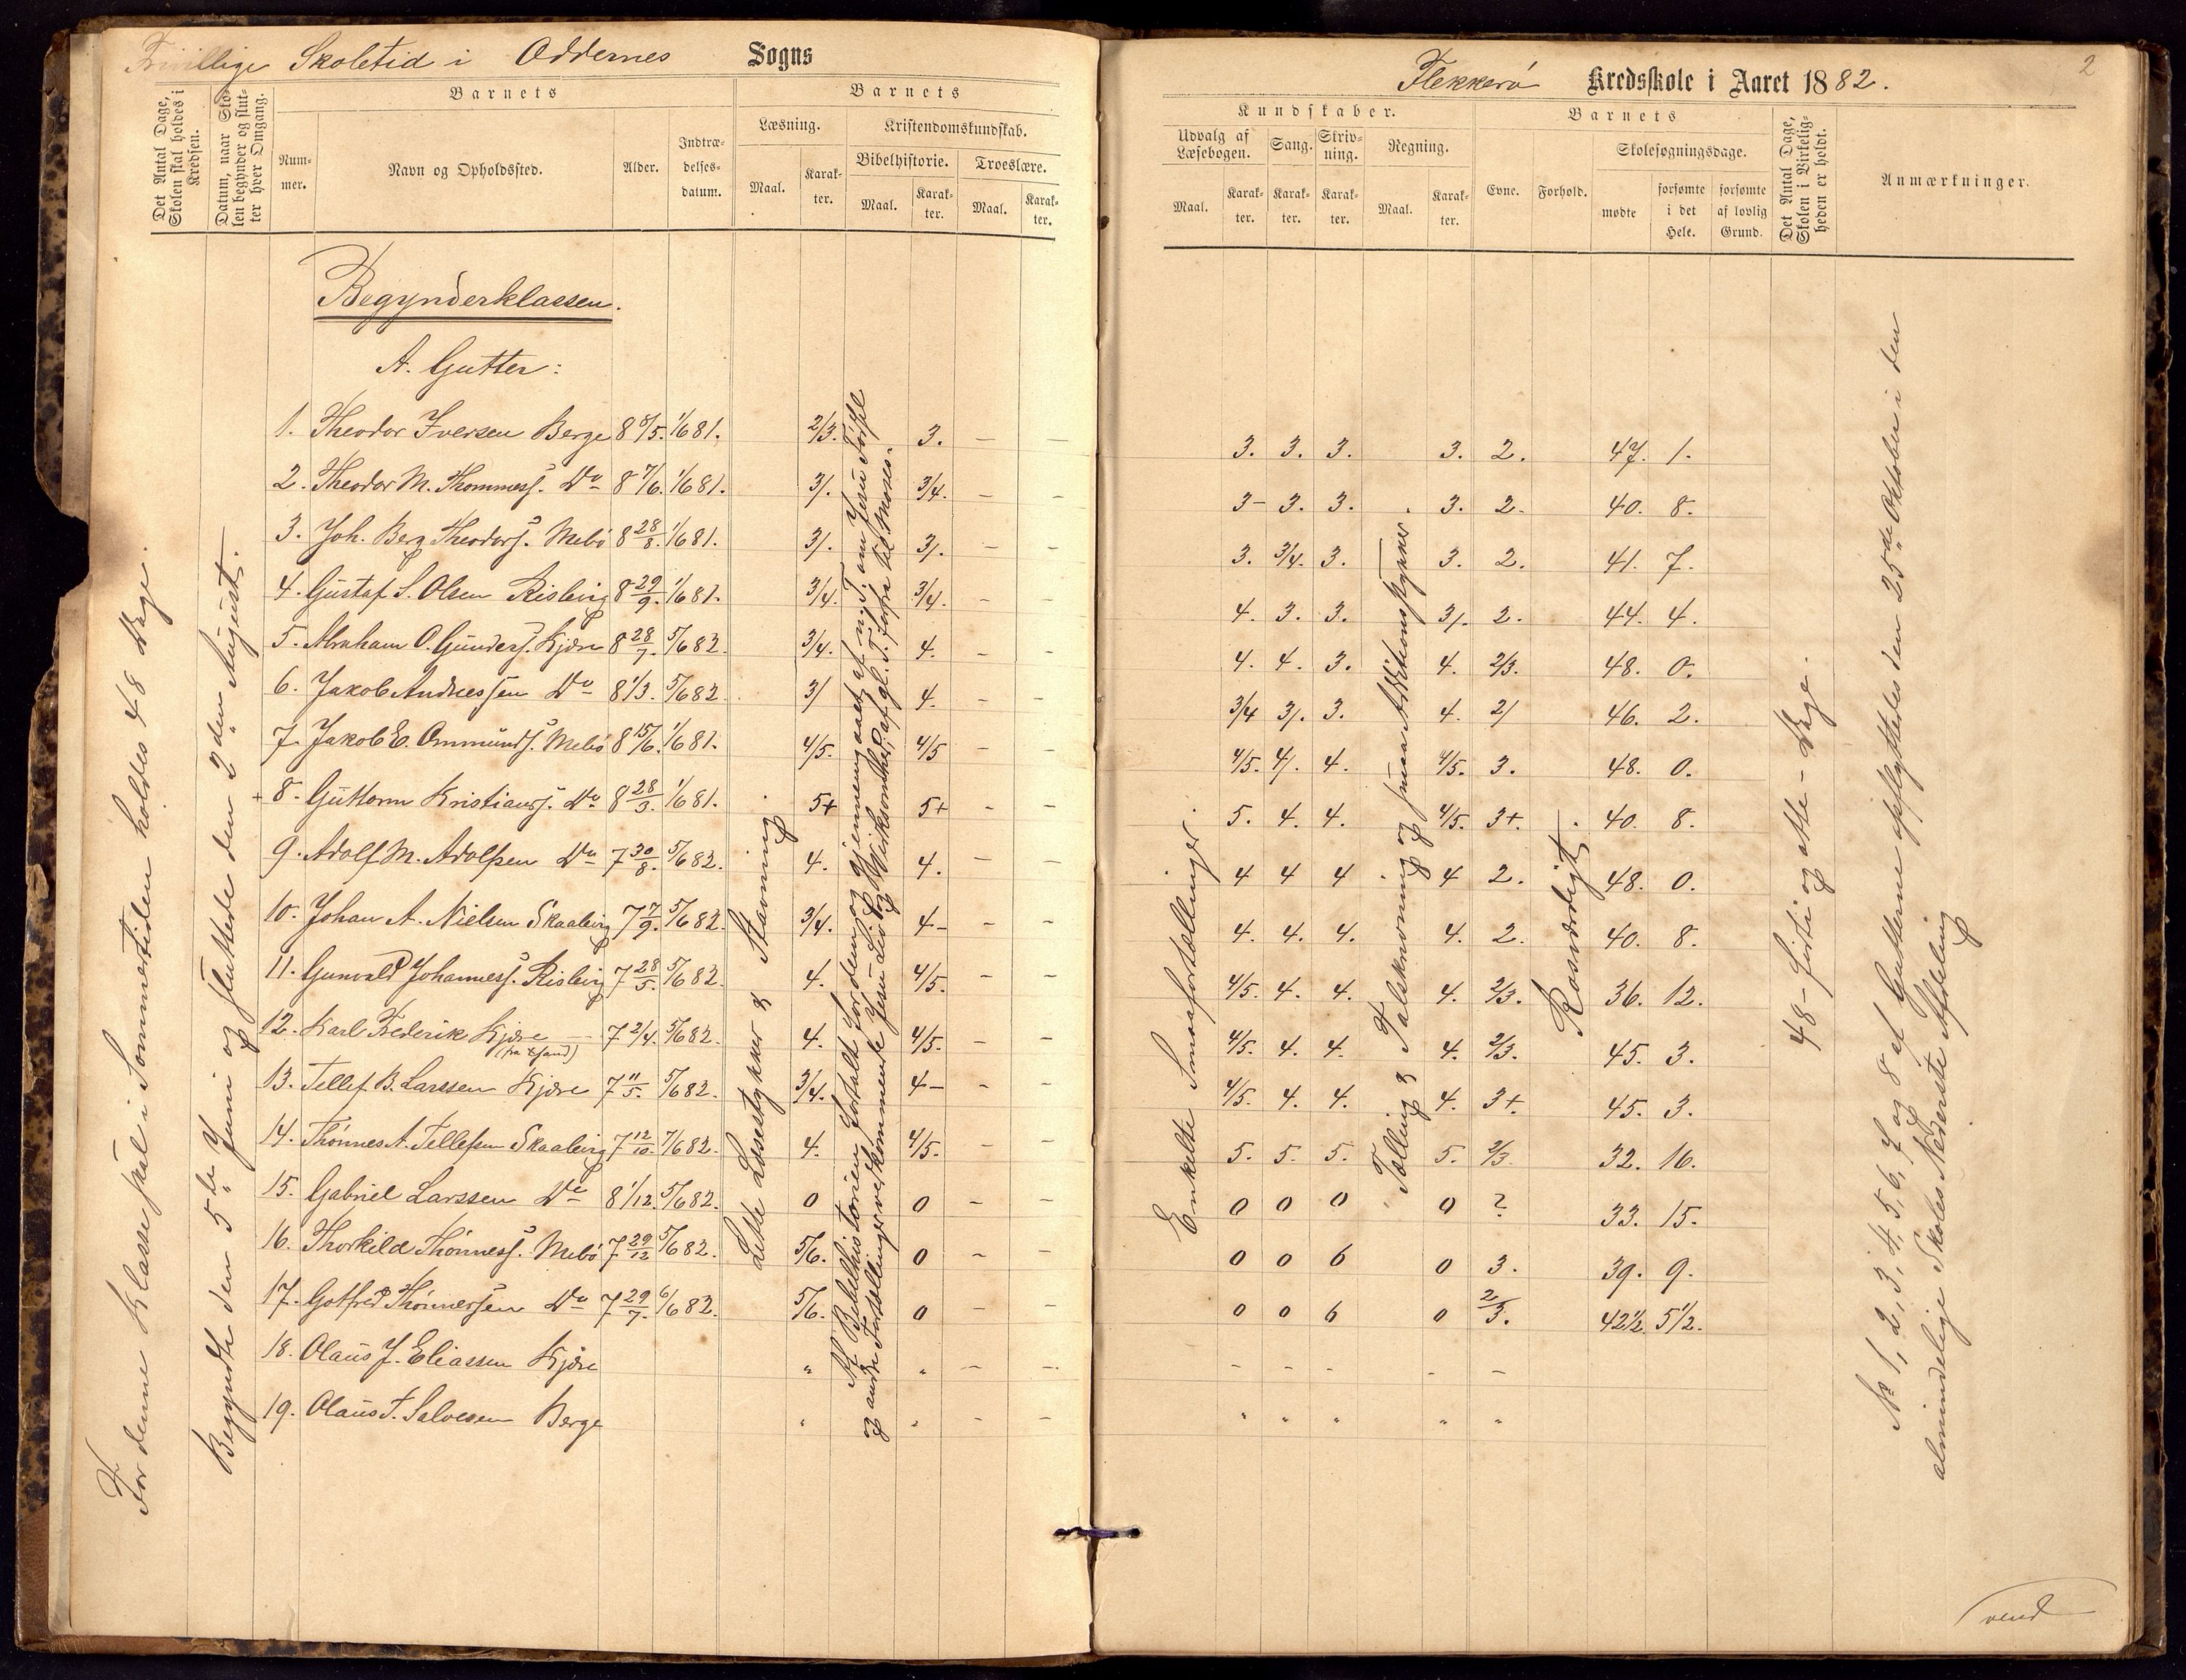 Frivillige Skoletid i Oddernes Sogns
Det Antal Dage, Skolen skal holdes i Kredsen.
Datum, naar Skolen begynder og slutter hver Omgang.
Barnets
Nummer.
Navn og Opholdssted.
Alder.
Indtrædelsesdatum.
Barnets
Læsning.
Maal.
Karakter.
Kristendomskundskab.
Bibelhistorie.
Maal.
Karakter.
Troeslære.
Maal.
Karakter.
For denne Klasse skal i Sommertiden holdes 48 Dage.
Begyndte den 5te Juni og sluttede den 2den August.
Begynderklassen.
A. Gutter:
1. Theodor Iversen Berge 8 8/5. 1/6 81. 2/3. 3. — —
2. Theodor M. Thommess. Do 8 7/6. 1/6 81. 3/. 3/4. — —
3. Joh. Berg Theodors. Mebø 8 28/8. 1/6 81. 3/. 3/. — —
4. Gustaf S. Olsen Risbvig 8 29/9. 1/6 81. 3/4. 3/4. — —
5. Abraham O. Gunders. Kjære 8 28/7. 5/6 82. 3/4. 4. — —
6. Jakob Andreassen Do 8 1/3. 5/6 82. 3/ 4. — —
7. Jakob E. Ommunds. Mebø 8 15/6. 1/6 81. 4/5. 4/5 — —
+ 8. Guttorm Kristians. Do 8 28/3. 1/6 81. 5+ 5+ — —
9. Adolf M. Adolfsen Do 7 30/8. 5/6 82. 4. 4. — —
10. Johan A. Nielsen Skaalvig 7 7/9. 5/6 82. 3/4. 4— — —
11. Gunvald Johanness. Risbvig 7 28/5. 5/6 82. 4. 4/5. — —
12. Karl Frederik Kjære 7 2/4. 5/6 82. 4. 4/5. — —
13. Tellef B. Larssen Kjære 7 11/5. 5/6 82. 3/4. 4— — —
14. Thønnes A. Tellefsen Skaalvig 7 12/10. 7/6 82. 4. 4/5. — —
15. Gabriel Larssen Do 8 1/12. 5/6 82. 0 0 — —
16. Thorkild Thønness. Mebø 7 29/12 5/6 82. 5/6. 0 — —
17. Gotfred Thønnessen Do 7 29/7. 6/6 82. 5/6. 0 — —
18. Olaus J. Eliassen Kjære " " — —
19. Olaus T. Salvesen Berge " " — —
Lette Læsestykker & Stavning
Af Bibelhistorien fortalt for dem og gjennemgaaet af ny T. om Jesu Fødsel
og andre Fortællinger vedkommende Jesu Liv og Virksomhed; af gl. T. forfra til Moses.
Flekkerø Kredsskole i Aaret 1882.
2
Kundskaber.
Udvalg af Læsebogen.
Maal.
Karakter.
Sang.
Karakter.
Skrivning.
Karakter.
Regning.
Maal.
Karakter.
Barnets
Evne.
Forhold.
Skolesøgningsdage.
mødte
forsømte i det Hele.
forsømte af lovlig Grund.
Det Antal Dage, Skolen i Virkeligheden er holdt.
Anmærkninger.
3. 3. 3. 3. 2. 47. 1.
3— 3. 3. 3. 2. 40. 8.
3. 3/4. 3. 3. 2. 41. 7.
4. 3. 3. 3/. 2. 44. 4.
4. 4. 3. 4. 2/3. 48. 0.
3/4 3/. 3. 4. 2/ 46. 2.
4/5. 4/. 4. 4/5. 3. 48. 0.
5. 4. 4. 4/5. 3+. 40. 8.
4 4 4 4 2. 48. 0.
4. 4. 4. 4. 2. 40. 8.
4/5. 4. 4. 4. 2/3. 36. 12.
4/5. 4. 4. 4. 2/3. 45. 3.
4/5. 4. 4. 4. 3+. 45. 3.
5. 5. 5. 5. 2/3 32. 16.
0 0 0 0 ? 33. 15.
0 0 6 0 3. 39. 9.
0 0 6 0 2/3. 42½. 5½.
— — — — —
" " " " "
Enkelte Smaafortællinger.
Tælling & Talskrivning og smaa Additionsstykker
Rosværdigt
48 - firti og otte - Dage.
No 1, 2, 3, 4, 5, 6, 7 og 8 af Gutterne opflyttedes den 25de Oktober i den
almindelige Skoles Nederste Afdeling
vend